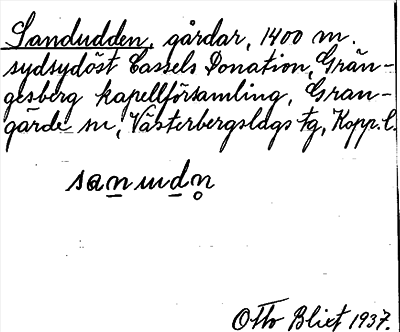 Sandudden, gårdar, 1400 m.
sydsydöst Cassels Donation, Grän-
gesberg kapellförsamling, Gran-
gärde sn, Västerbergslags tg, Kopp. l.
Otto Blixt 1937.